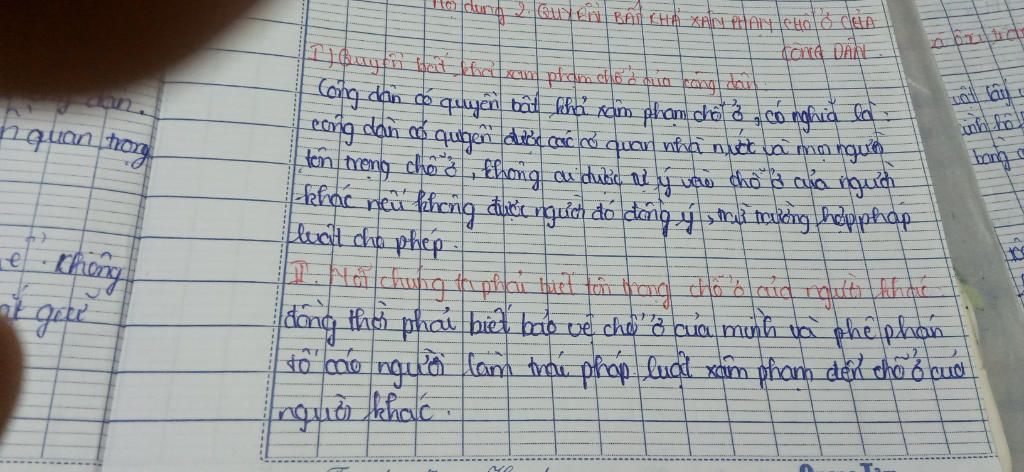 Nội dung 2. QUYỀN BẤT KHẢ XÂM PHẠM CHỖ Ở CỦA
CÔNG DÂN
I) Quyền bất khả xâm phạm chỗ ở của công dân
Công dân có quyền bất khả xâm phạm chỗ ở, có nghĩa là:
công dân có quyền được các cơ quan nhà nước và mọi người
tôn trọng chỗ ở, không ai được tự ý vào chỗ ở của người
khác nếu không được người đó đồng ý, trừ trường hợp pháp
luật cho phép.
II. Mỗi chúng ta phải biết tôn trọng chỗ ở của người khác
đồng thời phải biết bảo vệ chỗ ở của mình và phê phán
tố cáo người làm trái pháp luật xâm phạm đến chỗ ở của
người khác.
quan trọng
không